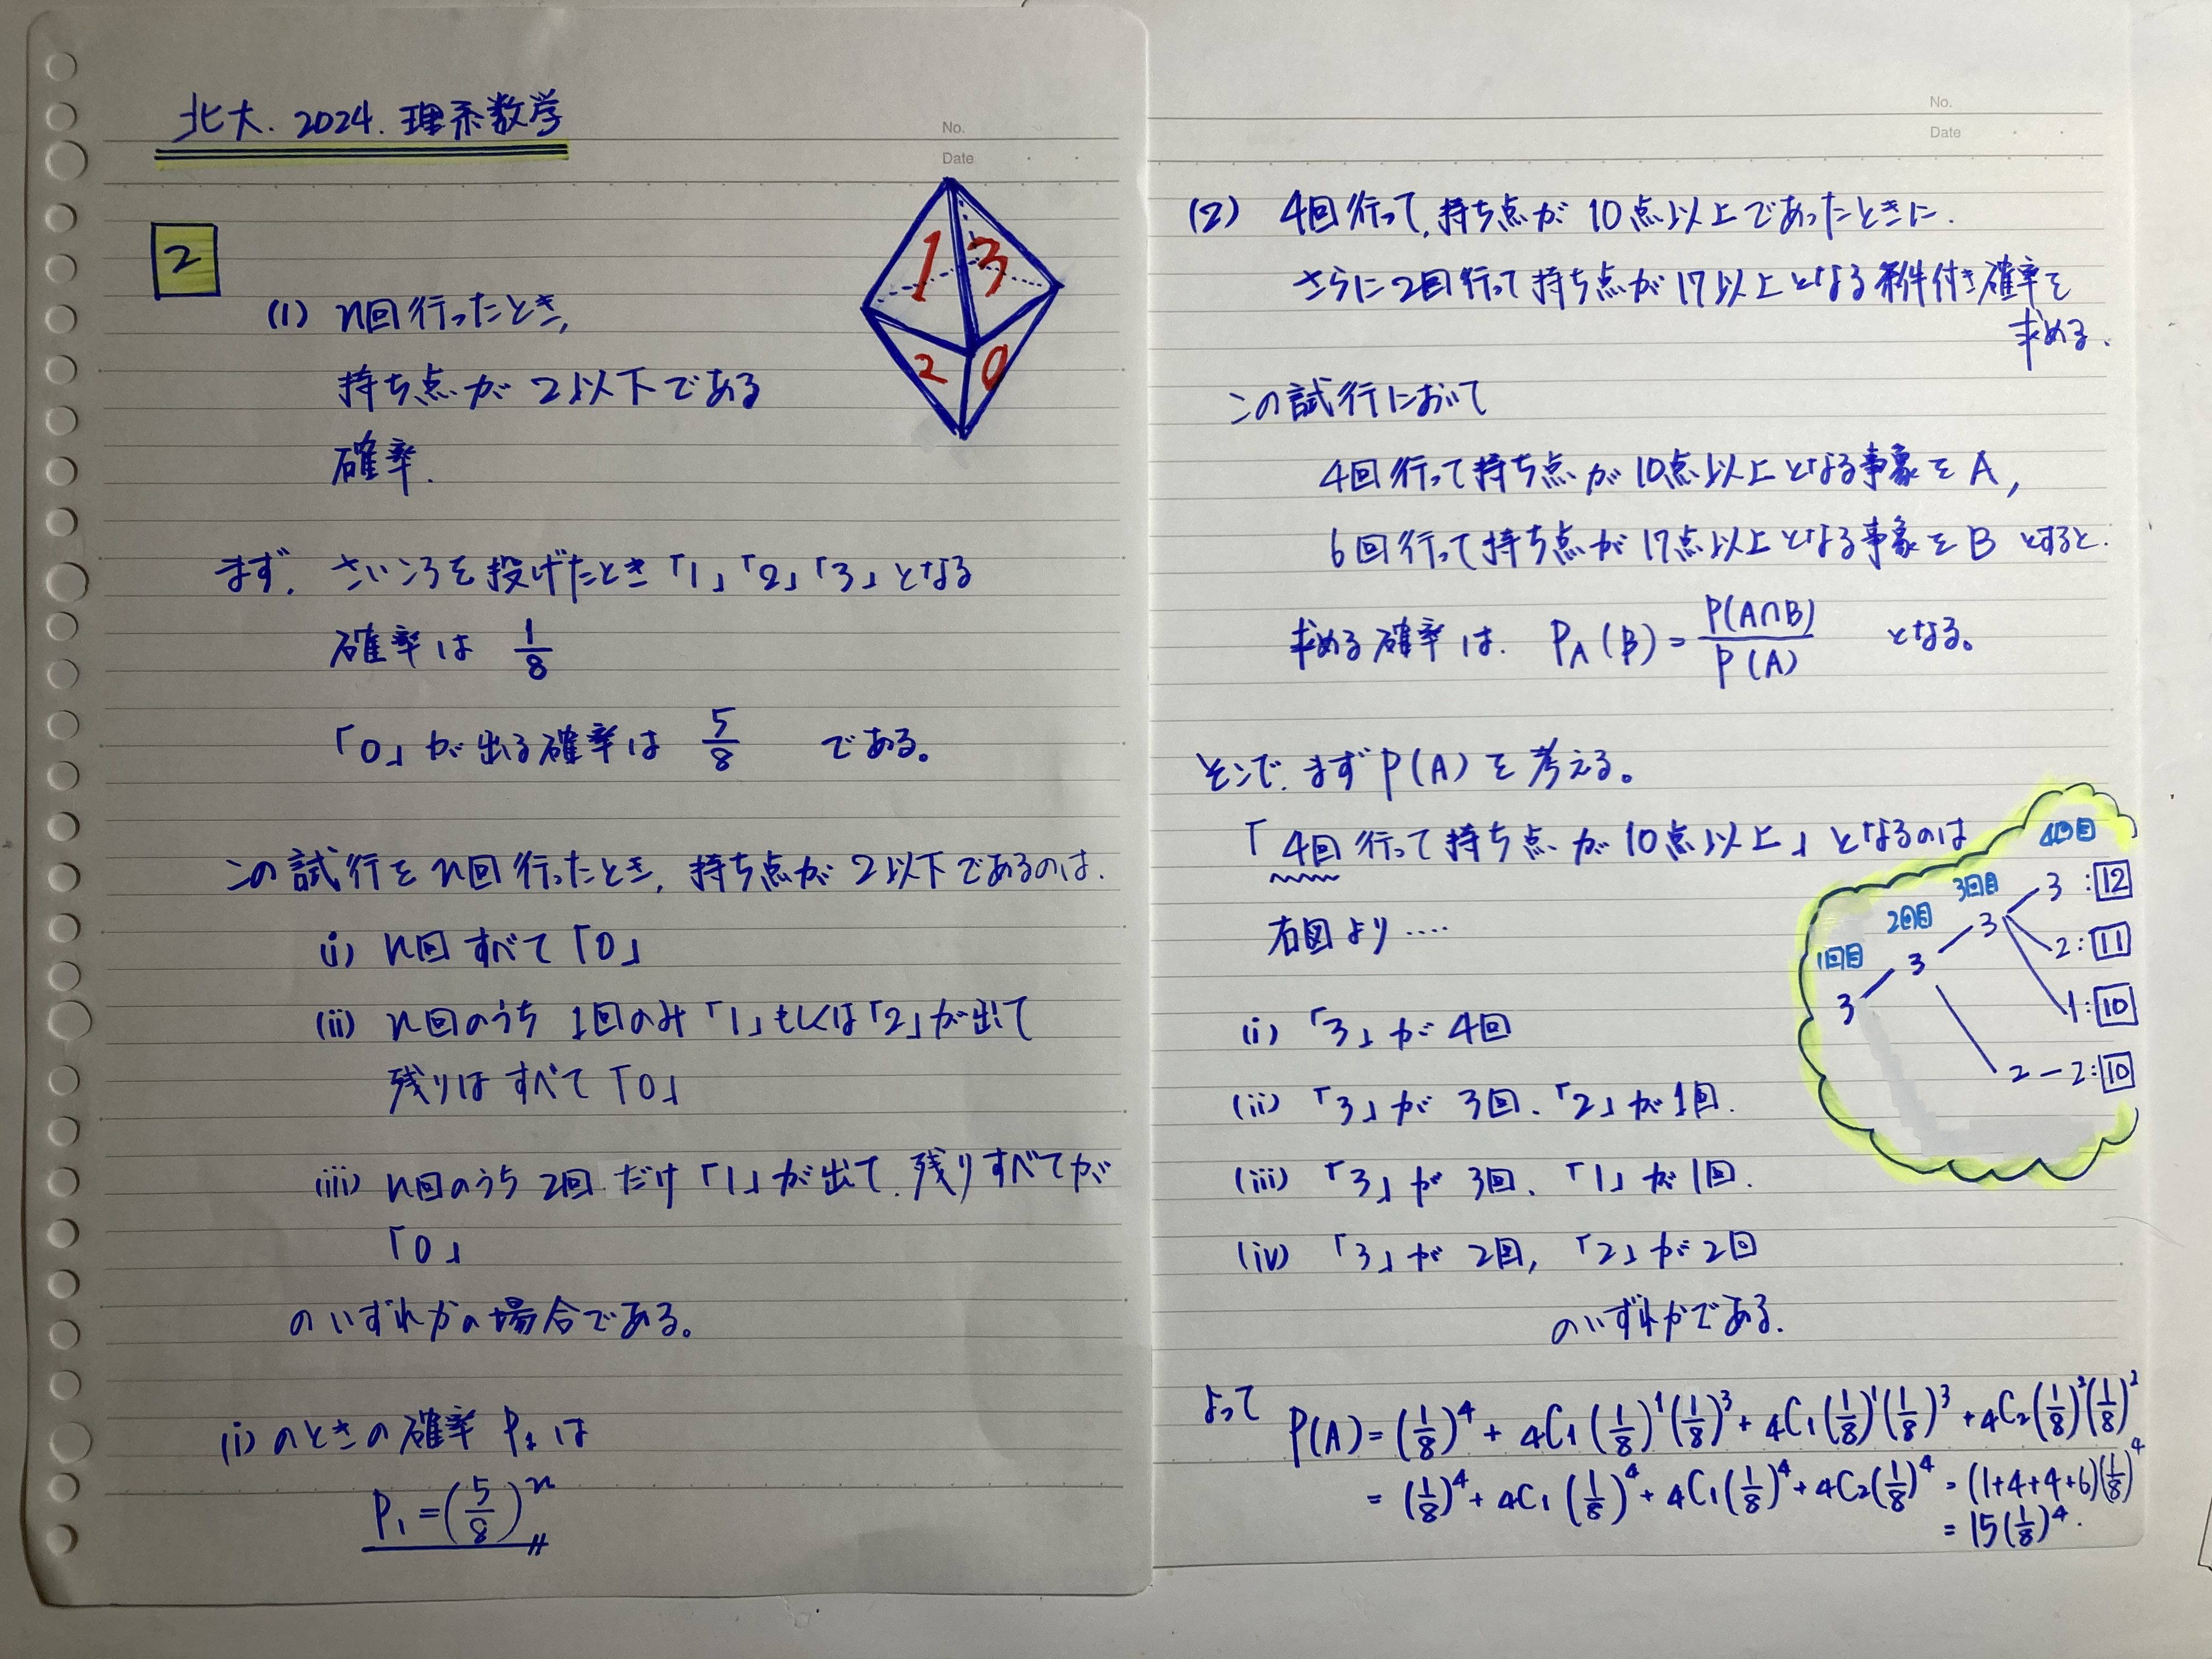 北大. 2024. 理系数学
No.
Date
2
1 3
2 0
(1) n回行ったとき,
持ち点が2以下である
確率.
まず. さいころを投げたとき「1」「2」「3」となる
確率は 1/8
「0」が出る確率は 5/8 である。
この試行をn回行ったとき, 持ち点が2以下であるのは.
(i) n回すべて「0」
(ii) n回のうち 1回のみ「1」もしくは「2」が出て
残りはすべて「0」
(iii) n回のうち 2回だけ「1」が出て. 残りすべてが
「0」
のいずれかの場合である。
(i) のときの確率 P₁ は
P₁ = (5/8)ⁿ
No.
Date
(2) 4回行って, 持ち点が10点以上であったときに.
さらに2回行って持ち点が17以上となる条件付き確率を
求める.
この試行において
4回行って持ち点が10点以上となる事象をA,
6回行って持ち点が17点以上となる事象をBとすると.
求める確率は. P_A(B) = P(A∩B)/P(A) となる。
そこで. まずP(A)を考える。
「4回行って持ち点が10点以上」となるのは
右図より ‥‥
1回目 2回目 3回目 4回目
3 3 3 3 : 12
2 : 11
1 : 10
2 — 2 : 10
(i) 「3」が4回
(ii) 「3」が3回. 「2」が1回.
(iii) 「3」が3回. 「1」が1回.
(iv) 「3」が2回, 「2」が2回
のいずれかである.
よって P(A) = (1/8)⁴ + ₄C₁(1/8)¹(1/8)³ + ₄C₁(1/8)¹(1/8)³ + ₄C₂(1/8)²(1/8)²
= (1/8)⁴ + ₄C₁(1/8)⁴ + ₄C₁(1/8)⁴ + ₄C₂(1/8)⁴ = (1+4+4+6)(1/8)⁴
= 15(1/8)⁴.